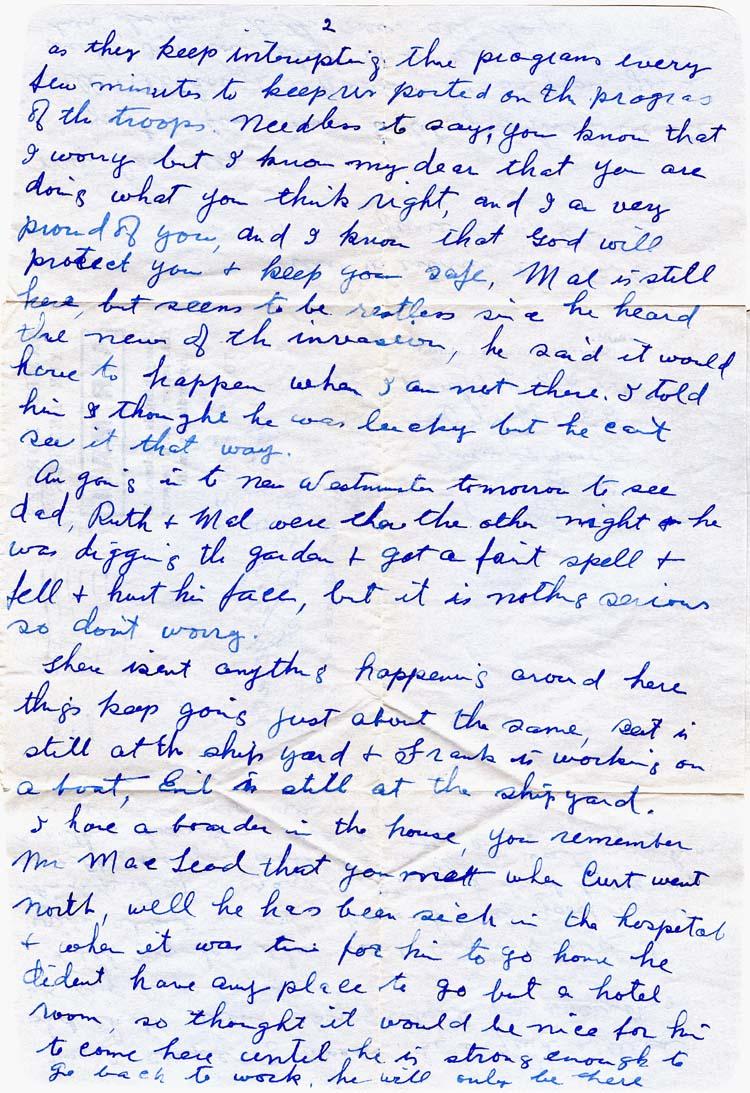 2
as they keep interupting the programs every
few minutes to keep us posted on th progras
of th troops. Needless to say, you know that
I worry but I know my dear that you are
doing what you think right, and I am very
proud of you, and I know that God will
protect you + keep you safe, Mal is still
here, but seems to be restless since he heard
the news of th invasion, he said it would
have to happen when I am not there. I told
him I thought he was lucky but he cant
see it that way.
Am going in to New Westminster tomorrow to see
dad, Ruth + Mal were the other night + he
was digging the garden + got a faint spell +
fell + hurt his face, but it is nothing serious
so don't worry.
There isent anything happening around here
things keep going just about the same, is
still at th ship yard + Frank is working on
a boat, Emil is still at the shipyard.
I have a boarder in the house, you remember
Mr Mac Leod that you mett when Curt went
North, well he has been sick in the hospital
+ when it was time for him to go home he
dident have any place to go but a hotel
room, so thought it would be nice for him
to come here until he is strong enough to
go back to work. he will only be here